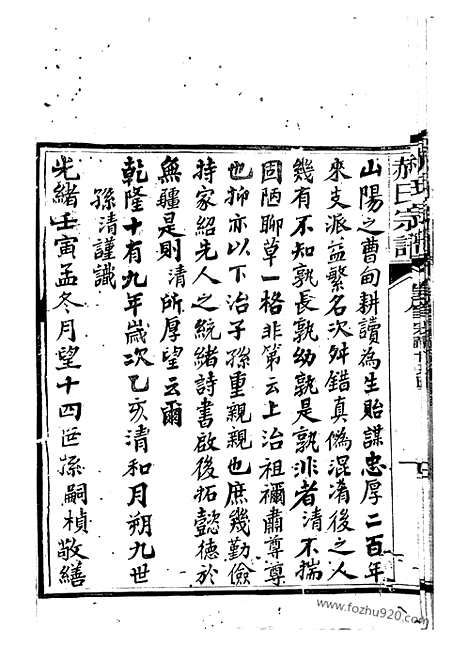 山陽之曹甸耕讀為生貽謀忠厚二百年
來支派益繁名次舛錯真偽混淆後之人
幾有不知孰長孰幼孰是孰非者清不揣
固陋聊草一格非第云上治祖禰肅尊尊
也抑亦以下治子孫重親親也庶幾勤儉
持家紹先人之統緒詩書啟後拓懿德於
無疆是則清所厚望云爾
乾隆十有九年歲次乙亥清和月朔九世
孫清謹識
光緒壬寅孟冬月望十四世孫嗣楨敬繕
郝氏宗譜
www.fozhu920.com